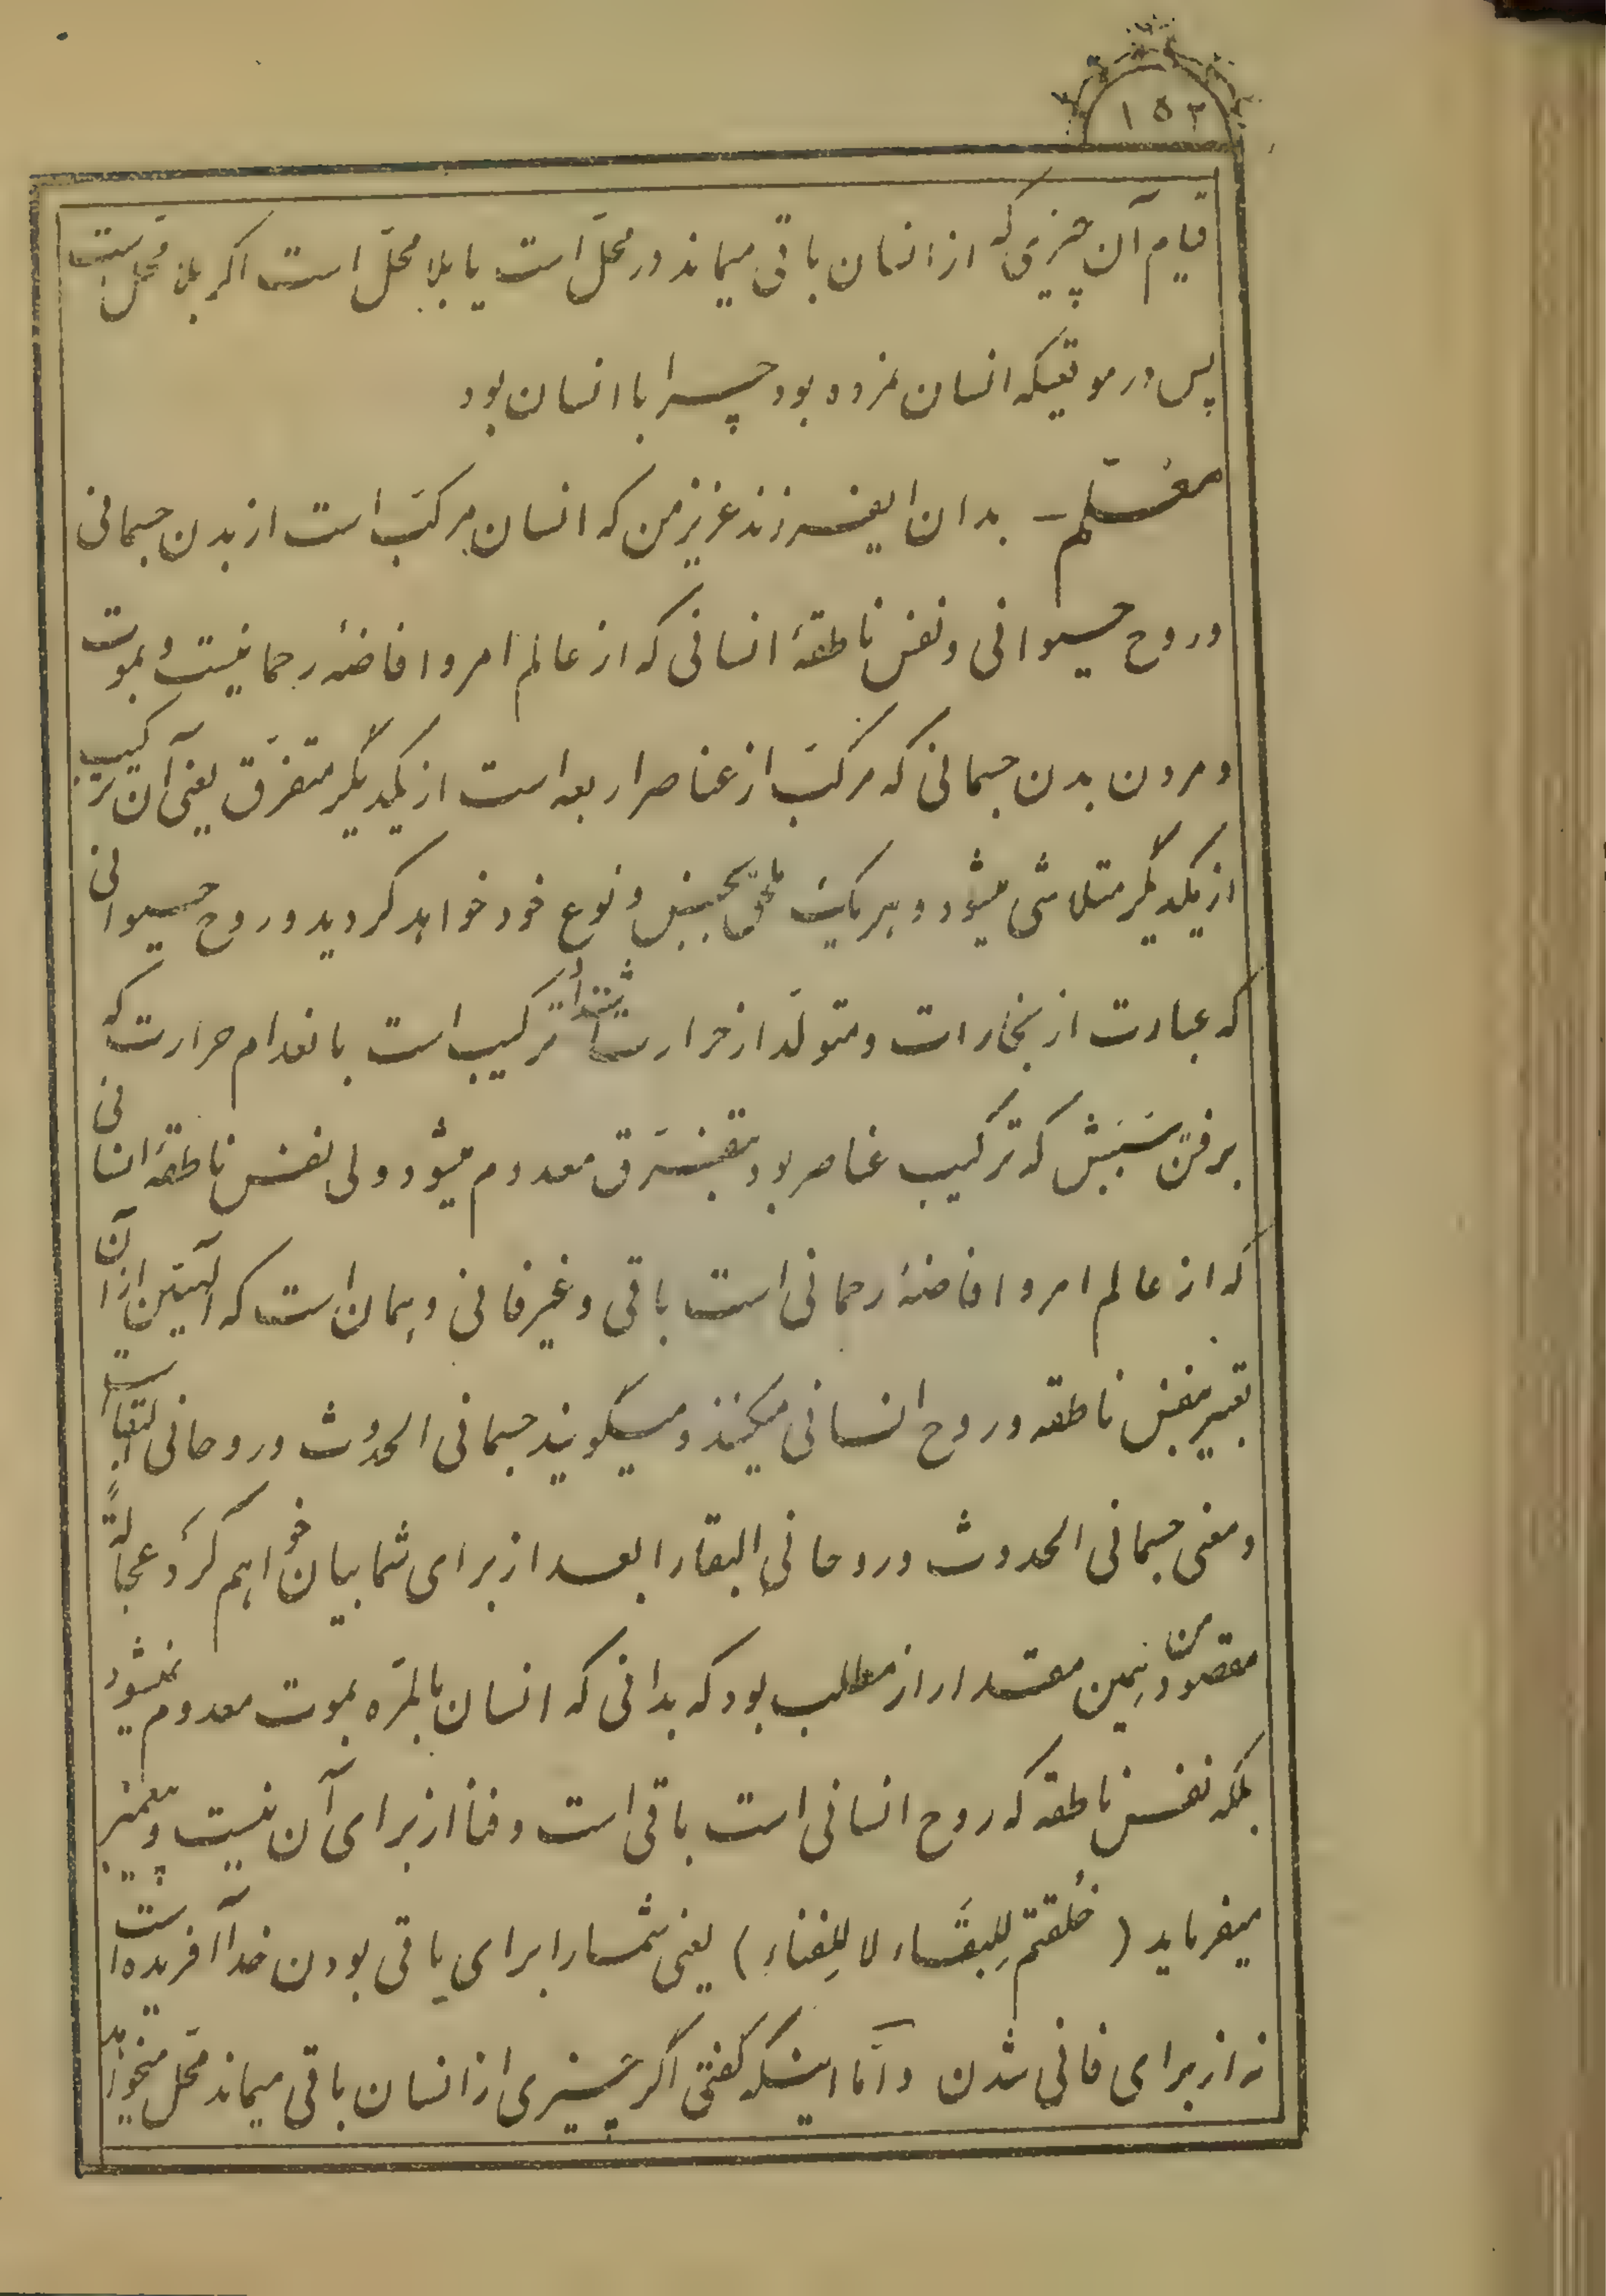 ۱۵۲
قیام آن چیزی که از انسان باقی میماند در محلّ است یا بلا محلّ است اگر بلا محلّ است
پس در موقعیکه انسان نمرده بود چرا با انسان بود
معلّم – بدان ایفرزند عزیز من که انسان مرکّب است از بدن جسمانی
و روح حیوانی و نفس ناطقهٔ انسانی که از عالم امر و افاضهٔ رحمانیست و بموت
و مردن بدن جسمانی که مرکّب از عناصر اربعه است از یکدیگر متفرّق یعنی آن ترکیب
از یکدیگر متلاشی میشود و هر یک ملحق بجنس و نوع خود خواهد گردید و روح حیوانی
که عبارت از بخارات و متولّد از حرارت ترکیب است بانعدام حرارت که
برفتن سَبَبش که ترکیب عناصر بود بتفرّق معدوم میشود ولی نفس ناطقهٔ انسانی
که از عالم امر و افاضهٔ رحمانی است باقی و غیر فانی و همان است که الهیّین از آن
تعبیر بنفس ناطقه و روح انسانی میکنند و میگویند جسمانی الحدوث و روحانی البقاء است
و معنی جسمانی الحدوث و روحانی البقا را بعد از برای شما بیان خواهم کرد و عجالةً
مقصود من همین مقدار از مطلب بود که بدانی که انسان بالمرّه بموت معدوم نمیشود
بلکه نفس ناطقه که روح انسانی است باقی است و فنا از برای آن نیست و پیغمبر
میفرماید ( خُلقتم لِلبقَاء لا لِلفناء ) یعنی شما را برای باقی بودن خدا آفریده است
نه از برای فانی شدن و امّا اینکه گفتی اگر چیزی از انسان باقی میماند محّل میخواهد